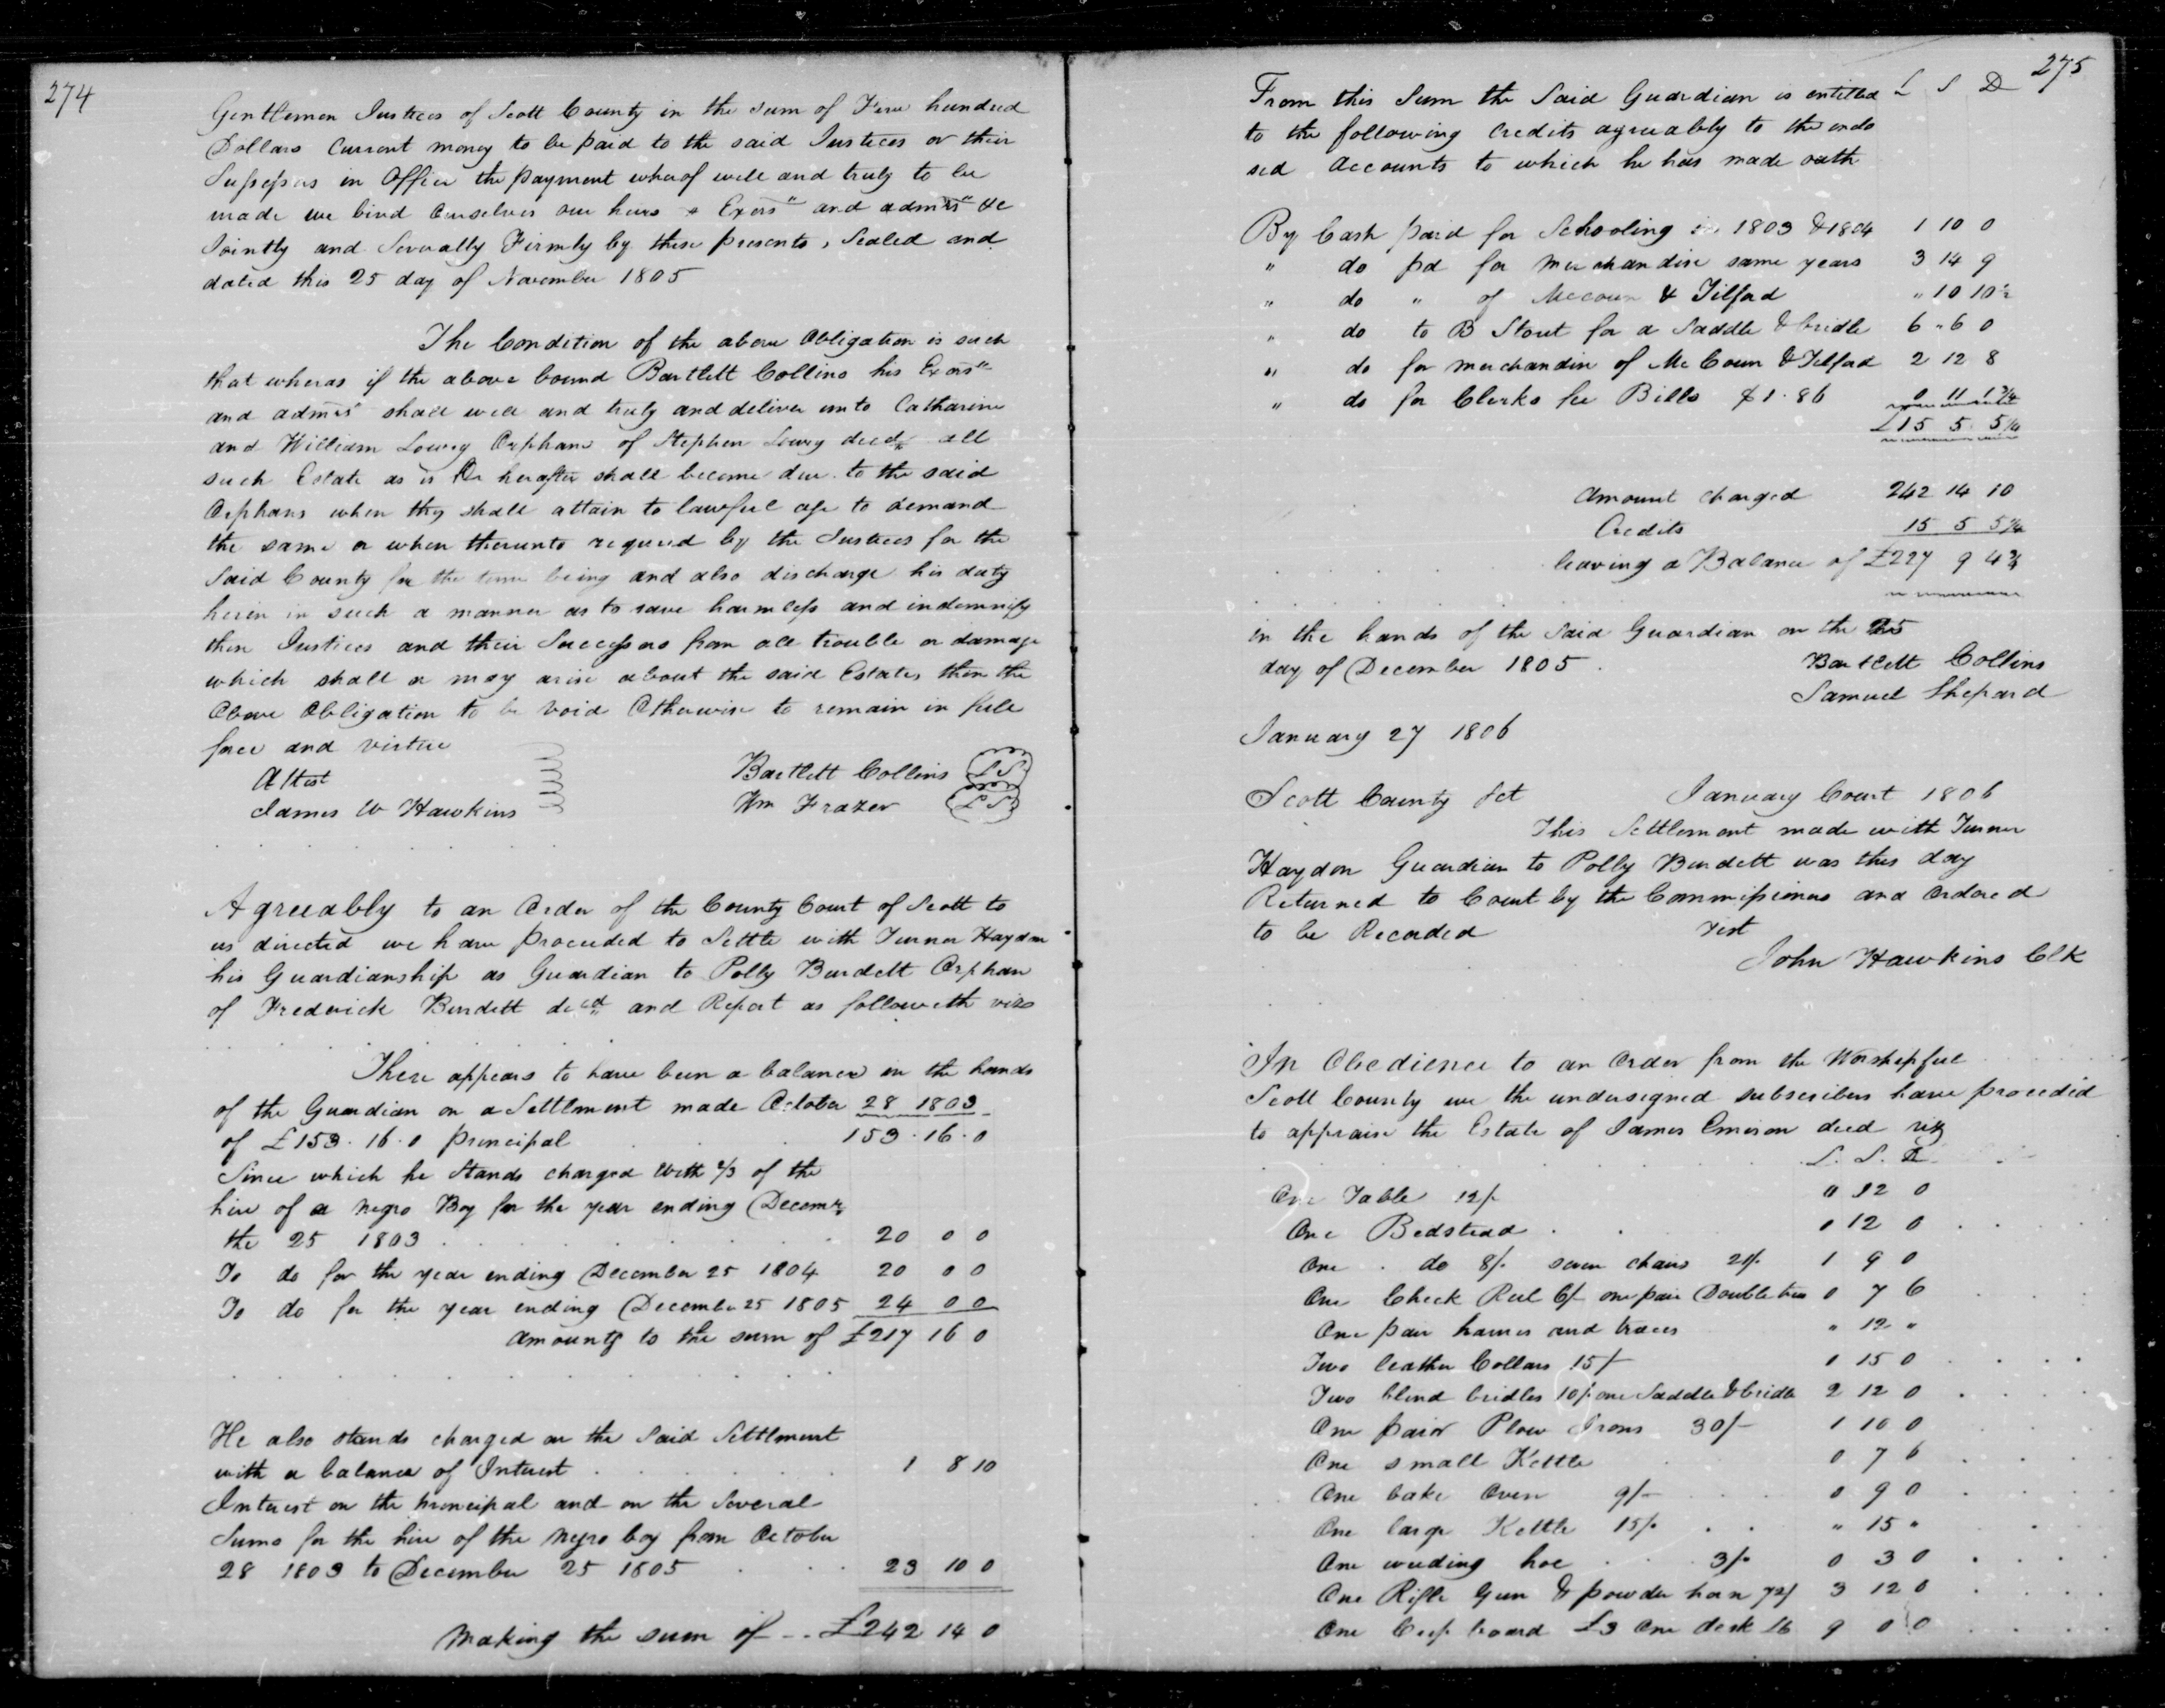 274
Gentlemen Justices of Scott County in the sum of Five hundred
Dollars Current money to be paid to the said Justices or their
Sussessors in Office the payment wherof well and truly to be
made we bind Ourselves our heirs & Exors" and admrs" &c
Jointly and Severally Firmly by these presents, Sealed and
dated this 25 day of November 1805
The Condition of the above Obligation is such
that wheras if the above bound Bartlett Collins his Exors"
and admrs" shall well and truly and deliver unto Catharine
and William Lowry Orphans of Stephen Lowry decd all
such Estate as is Or herafter shall become due to the said
Orphans when they shall attain to lawful age to demand
the same or when therunto requred by the Justices for the
Said County for the time being and also discharge his duty
herin in such a manner as to save harmless and indemnify
then Justices and their Successors from all trouble or damage
which shall or may arise about the said Estates then the
Above Obligation to be void Otherwise to remain in full
force and virtue
Attest
James W Hawkins
Bartlett Collins LS
Wm Frazer LS
Agreeably to an Order of the County Court of Scott to
us directed we have proceeded to Settle with Turner Haydon
his Guardianship as Guardian to Polly Burdett Orphan
of Frederick Burdett decd and Report as followeth viz
There appears to have been a balance in the hands
of the Guardian on a Settlment made October 28 1803
of £153.16.0 principal 153.16.0
Since which he Stands charged With 2/3 of the
hire of a negro Boy for the year ending Decemr
the 25 1803 20 0 0
To do for the year ending December 25 1804 20 0 0
To do for the year ending December 25 1805 24 0 0
amounts to the sum of £217 16 0
He also stands charged on the Said Settlment
with a balance of Interest 1 8 10
Interest on the principal and on the Several
Sums for the hire of the negro boy from October
28 1803 to December 25 1805 23 10 0
Making the sum of -- £242 14 0
275
From this Sum the Said Guardian is entitled £ S D
to the following Credits agreeably to the endo
sed Accounts to which he has made oath
By Cash paid for Schooling in 1803 & 1804 1 10 0
" do pd for merchandise same years 3 14 9
" do " of Mccoun & Tilford " 10 10½
" do to B Stout for a Saddle & bridle 6 " 6 0
" do for merchandise of McCoun & Tilford 2 12 8
" do for Clerks fee Bills $1.86 0 11 1¾
£15 5 5¼
Amount charged 242 14 10
Credits 15 5 5¼
leaving a Balance of £227 9 4¾
in the hands of the Said Guardian on the 25
day of December 1805.
Bartlett Collins
Samuel Shepard
January 27 1806
Scott County Sct January Court 1806
This Settlement made with Turner
Haydon Guardian to Polly Burdett was this day
Returned to Court by the Commissioners and Ordered
to be Recorded Test
John Hawkins Clk
In Obedience to an Order from the Worshipful
Scott County we the undersigned subscribers have proceded
to appraise the Estate of James Emison decd viz
£. S. D
One Table 12/. " 12 0
One Bedstead 0 12 0
One do 8/. seven chairs 21/. 1 9 0
One Check Reel 6/- one pair Doubletrees 0 7 6
One pair hames and traces " 12 "
Two leather Collars 15/- 0 15 0
Two blind bridles 10/. one Saddle & bridle 2 12 0
One pair Plow Irons 30/- 1 10 0
One small Kettle 0 7 6
One bake Oven 9/- 0 9 0
One large Kettle 15/. " 15 "
One weeding hoe 3/. 0 3 0
One Rifle Gun & powder horn 72/ 3 12 0
One Cupboard £3 One desk £6 9 0 0